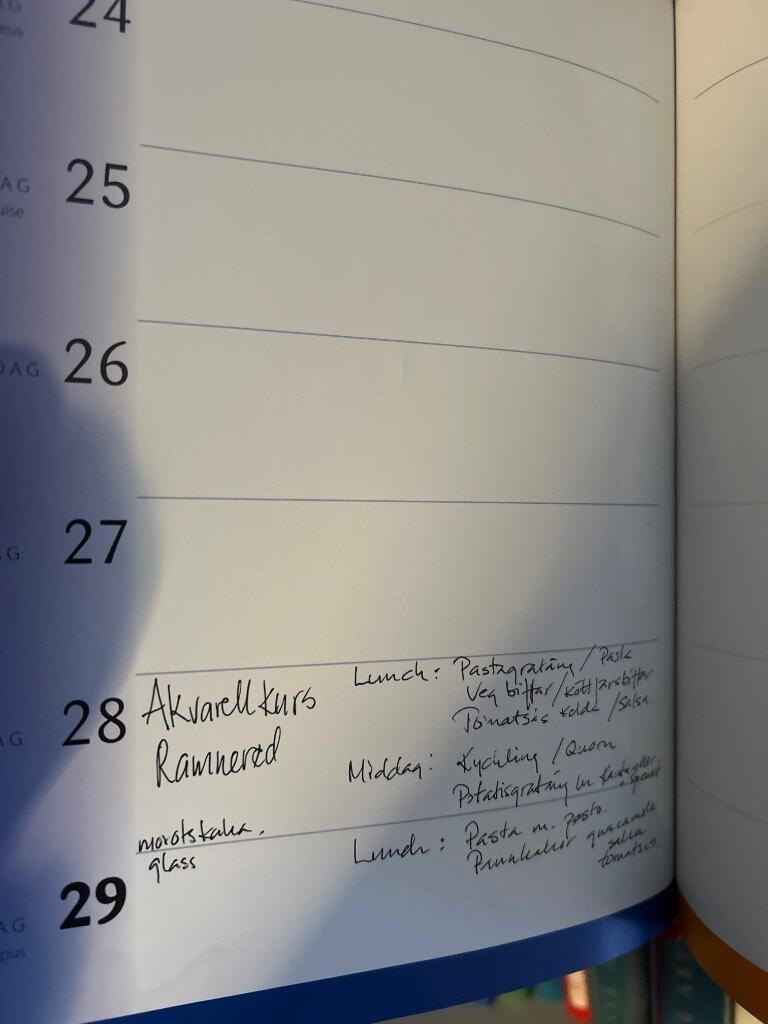 24
25
AG
26
DAG
27
AG
28
AG
Akvarellkurs
Ramnered
Lunch: Pastagratäng / Pasta
Veg biffar / köttfärsbiffar
Tomatsås kalla / Salsa
Middag: Kyckling / Quorn
Potatisgratäng m.
morotskaka.
glass
29
AG
pus
Lunch: Pasta m. pesto.
guacamole
salsa
tomatsås.